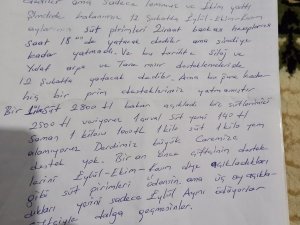 dediler ama sadece temmuz ve Ekim yattı
Şimdide bakanımız 12 Şubatta Eylül-Ekim-Kasım
aylarının süt pirimleri Ziraat bankası hesaplarına
saat 18 de yatacak dediler ama şimdiye
kadar yatmadı. Ve bu tarihte silaj ve
Yulaf arpa ve Tane mısır desteklemeleride
12 Şubatta yatacak dediler. Ama bu güne kadar
hiç bir prim destekleriniz yatmamıştır
Bir Lt Süt 2800 tl bakan açıkladı biz sütlerimizi
2500 tl veriyoruz 1 çuval süt yemi 140 tl
Saman 1 kilosu 1000 tl 1 kilo süt 1 kilo yem
alamıyoruz Derdimiz büyük Caremize
destek yok. Bir an önce çiftçinin destek
lerini Eylül-Ekim-Kasım diye açıkladıkları
çiğ süt pirimleri ödensin ama üç ay açıkla
dıkları yerini sadece Eylül Ayını ödüyorlar
çiftçiyle dalga geçmesinler.